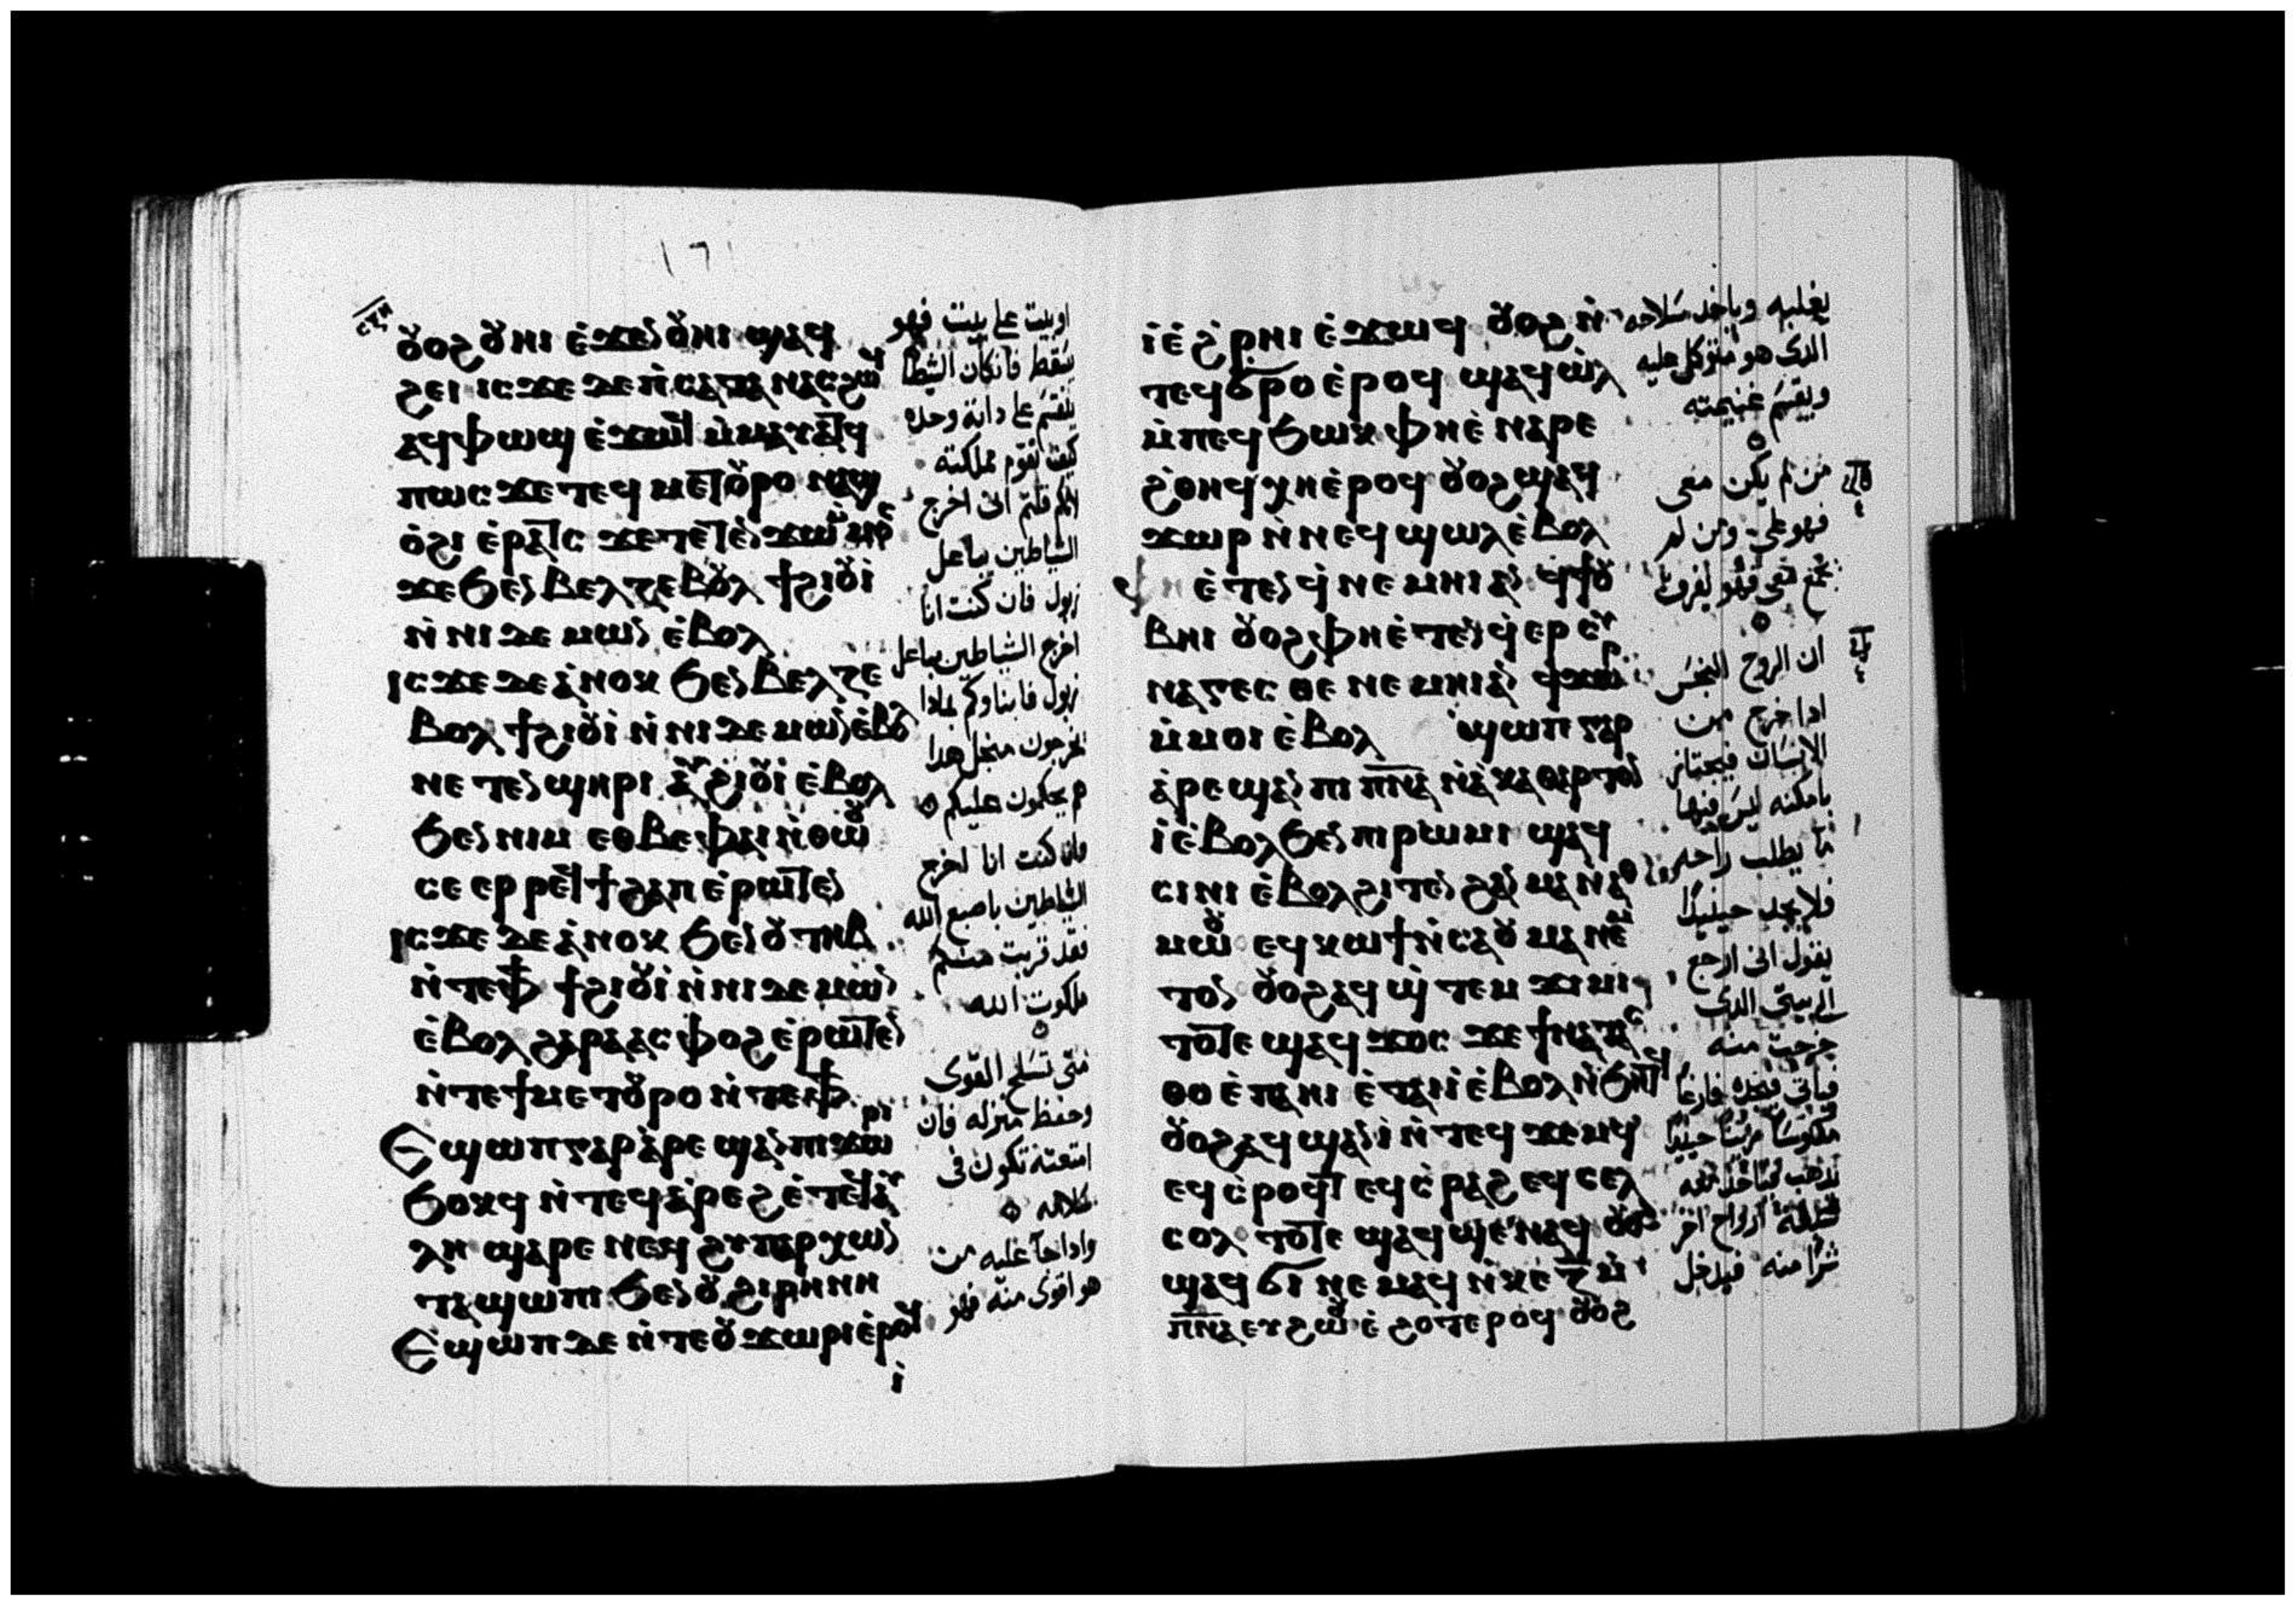 ⲟⲩⲟϩ ⲟⲩⲏⲓ ⲉ̀ϫⲉⲛ ⲟⲩⲏⲓ ϣⲁϥ
ϩⲉⲓ ⲓⲥϫⲉ ⲇⲉ ⲡ̀ⲥⲁⲧⲁⲛⲁⲥ ϩⲱϥ
ⲁϥⲫⲱϣ ⲉ̀ϫⲱϥ ⲙ̀ⲙⲁⲩⲁⲧϥ
ⲡⲱⲥ ϫⲉ ⲧⲉϥⲙⲉⲧⲟⲩⲣⲟ ⲛⲁϣ
ⲟ̀ϩⲓ ⲉ̀ⲣⲁⲧⲥ ϫⲉ ⲧⲉⲧⲉⲛϫⲱ ⲙⲙⲟⲥ
ϫⲉ ϧⲉⲛ ⲃⲉⲗⲍⲉⲃⲟⲩⲗ ϯϩⲓⲟⲩⲓ̀
ⲛ̀ⲛⲓⲇⲉⲙⲱⲛ ⲉ̀ⲃⲟⲗ
ⲓⲥϫⲉ ⲇⲉ ⲁ̀ⲛⲟⲕ ϧⲉⲛ ⲃⲉⲗⲍⲉ
ⲃⲟⲩⲗ ϯϩⲓⲟⲩⲓ̀ ⲛ̀ⲛⲓⲇⲉⲙⲱⲛ ⲉ̀ⲃⲟⲗ
ⲛⲉⲧⲉⲛϣⲏⲣⲓ ⲁⲩϩⲓⲟⲩⲓ̀ ⲉ̀ⲃⲟⲗ
ϧⲉⲛ ⲛⲓⲙ ⲉⲑⲃⲉ ⲫⲁⲓ ⲛ̀ⲑⲱⲟⲩ
ⲥⲉⲉⲣⲣⲉϥϯϩⲁⲡ ⲉ̀ⲣⲱⲧⲉⲛ
ⲓⲥϫⲉ ⲇⲉ ⲁ̀ⲛⲟⲕ ϧⲉⲛ ⲟⲩⲧⲏⲃ
ⲛ̀ⲧⲉ ⲫϯ ϯϩⲓⲟⲩⲓ̀ ⲛ̀ⲛⲓⲇⲉⲙⲱⲛ
ⲉ̀ⲃⲟⲗ ϩⲁⲣⲁ ⲁⲥⲫⲟϩ ⲉ̀ⲣⲱⲧⲉⲛ
ⲛ̀ⲧⲉϯⲙⲉⲧⲟⲩⲣⲟ ⲛ̀ⲧⲉ ⲫϯ
ⲉϣⲱⲡ ⲅⲁⲣ ⲁ̀ⲣⲉϣⲁⲛ ⲡⲓϫⲱⲣⲓ
ϧⲟⲕϥ ⲛ̀ⲧⲉϥⲁ̀ⲣⲉϩ ⲉ̀ⲧⲉϥⲁⲩ
ⲗⲏ ϣⲁⲣⲉ ⲛⲉϥϩⲩⲡⲁⲣⲭⲱⲛ
ⲧⲁ ϣⲱⲡⲓ ϧⲉⲛ ⲟⲩϩⲓⲣⲏⲛⲏ
ⲉϣⲱⲡ ⲇⲉ ⲛ̀ⲧⲉ ⲟⲩϫⲱⲣⲓ ⲉ̀ⲣⲟϥ
ⲓ̀
اوبيت على بيت فهو
يسقط فانكان الشيطا
ينقسم على ذاته وحده
كيف تقوم مملكته
لانكم قلتم انى اخرج
الشياطين بباعل
زبول فان كنت انا
اخرج الشياطين بباعل
زبول فابناوكم بماذا
يخرجون منجل هدا
هم يحكمون عليكم
فان كنت انا اخرج
الشياطين باصبع الله
فقد قربت منكم
ملكوت الله
متى تسلح القوى
وحفظ منزله فان
امتعته تكون فى
سلامه
واداجا عليه من
هو اقوى منه فهو
ⲓ̀ ⲉ̀ϩ̀ⲣⲏⲓ ⲉ̀ϫⲱϥ ⲟⲩⲟϩ ⲛ̀
ⲧⲉϥϭⲣⲟ ⲉ̀ⲣⲟϥ ϣⲁϥⲱ̀ⲗ
ⲙ̀ⲡⲉϥϧⲱⲕ ⲫⲏⲉ̀ⲛⲁⲣⲉ
ϩ̀ⲑⲏϥ ⲭⲏ ⲉ̀ⲣⲟϥ ⲟⲩⲟϩ ϣⲁϥ
ϫⲱⲣ ⲛ̀ⲛⲉϥϣⲱⲗ ⲉ̀ⲃⲟⲗ
ⲫⲏ ⲉ̀ⲧⲉⲛϥ̀ⲛⲉⲙⲏⲓ ⲁⲛ ϥϯⲟⲩ
ⲃⲏⲓ ⲟⲩⲟϩ ⲫⲏⲉ̀ⲧⲉⲛϥ̀ⲉⲣⲥⲩ
ⲛⲁⲅⲉⲥⲑⲉ ⲛⲉⲙⲏⲓ ⲁⲛ ϥϫⲱⲣ
ⲙ̀ⲙⲟⲓ ⲉ̀ⲃⲟⲗ ϣⲱⲡ ⲅⲁⲣ
ⲁ̀ⲣⲉϣⲁⲛ ⲡⲓⲡⲛⲁ ⲛ̀ⲁ̀ⲕⲁⲑⲁⲣⲧⲟⲛ
ⲓ̀ ⲉ̀ⲃⲟⲗ ϧⲉⲛ ⲡⲓⲣⲱⲙⲓ ϣⲁϥ
ⲥⲓⲛⲓ ⲉ̀ⲃⲟⲗ ϩⲓⲧⲉⲛ ϩⲁⲛⲙⲁ ⲛⲁⲑ
ⲙⲱⲟⲩ ⲉϥⲕⲱϯ ⲛ̀ⲥⲁ ⲟⲩⲙⲁⲛⲉⲙ
ⲧⲟⲛ ⲟⲩⲟϩ ⲁϥϣ̀ⲧⲉⲙϫⲓⲙⲓ
ⲧⲟⲧⲉ ϣⲁϥϫⲟⲥ ϫⲉ ϯⲛⲁⲧⲁⲥ
ⲑⲟ ⲉ̀ⲡⲁⲏⲓ ⲉ̀ⲧⲁⲓⲓ̀ ⲉ̀ⲃⲟⲗ ⲛ̀ϧⲏⲧϥ
ⲟⲩⲟϩ ⲁϥϣⲁⲛⲓ̀ ⲛ̀ⲧⲉϥϫⲉⲙϥ
ⲉϥⲥ̀ⲣⲟϥⲧ ⲉϥⲥ̀ⲣⲁϩ ⲉϥⲥⲉⲗ
ⲥⲟⲗ ⲧⲟⲧⲉ ϣⲁϥϣⲉⲛⲁϥ ⲟⲩⲟϩ
ϣⲁϥϭⲓ ⲛⲉⲙⲁϥ ⲛ̀ⲕⲉ ⲍ ⲙ̀
ⲡⲛⲁ ⲉⲩϩⲱⲟⲩ ⲉ̀ϩⲟⲧⲉⲣⲟϥ ⲟⲩⲟϩ
يغلبه وياخد سلاحه
الدى هو متوكل عليه
ويقسم غنيمته
من لم يكن معى
فهو على ومن لم
يجمع معى فهو يفرق
ان الروح النجس
ادا خرج من
الانسان فيجتاز
بامكنه ليس فيها
ما يطلب راحه
فلا يجد حينيدا
يقول انى ارجع
الى بيتى الدى
خرجت منه
فياتى فيجده فارغا
مكنوسا مزينا حينيدا
يدهب فياخد معه
ارواح اخر
شرا منه فيدخل